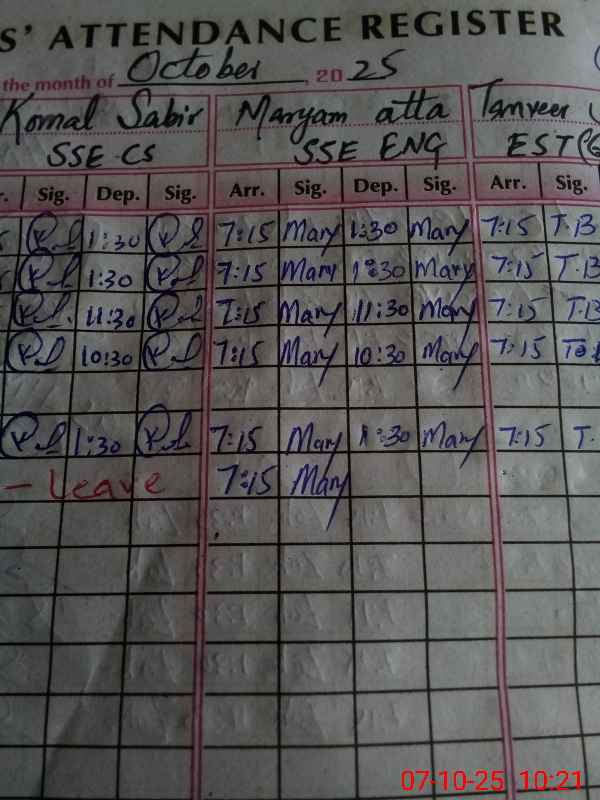 S' ATTENDANCE REGISTER
the month of October, 2025
Komal Sabir Maryam atta Tanveer
SSE CS SSE ENG EST
r. Sig. Dep. Sig. Arr. Sig. Dep. Sig. Arr. Sig.
1:30 7:15 Mary 1:30 Mary 7:15 T.B
1:30 7:15 Mary 1:30 Mary 7:15 T.B
11:30 7:15 Mary 11:30 Mary 7:15 T.B
10:30 7:15 Mary 10:30 Mary 7:15
1:30 7:15 Mary 1:30 Mary 7:15 T.
- Leave 7:15 Mary
07-10-25 10:21